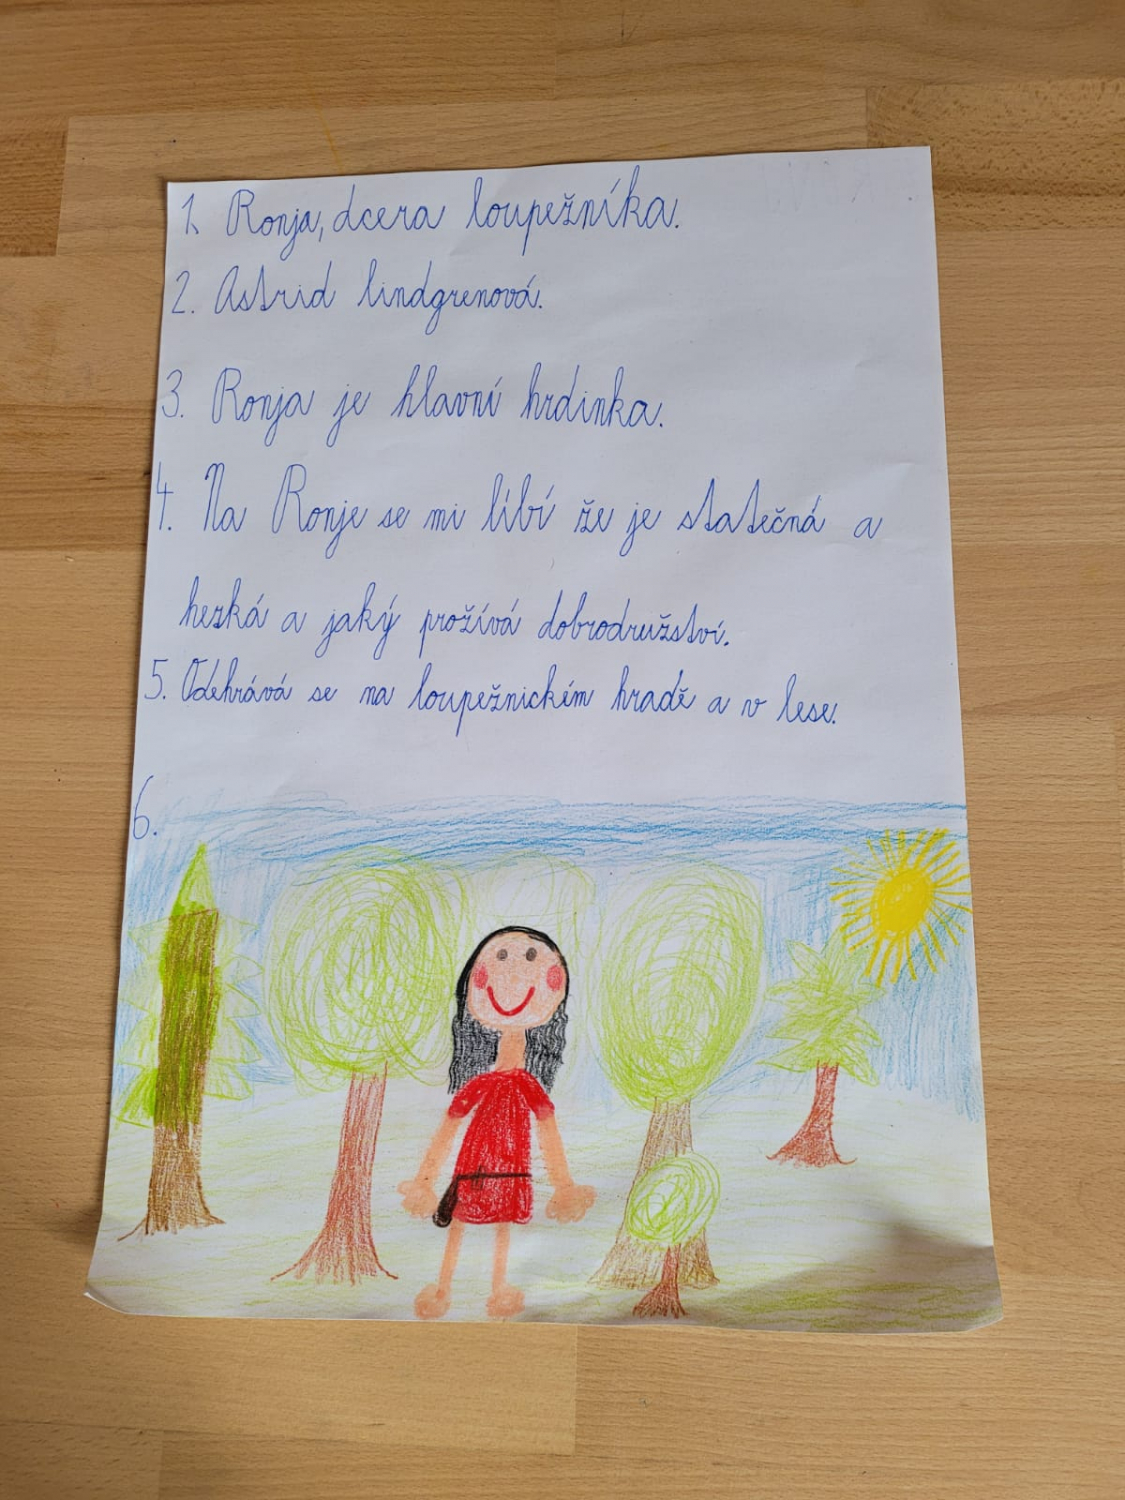 1. Ronja, dcera loupežníka.
2. Astrid lindgrenová.
3. Ronja je hlavní hrdinka.
4. Na Ronje se mi líbí že je statečná a
hezká a jaký prožívá dobrodružství.
5. Odehrává se na loupežnickém hradě a v lese.
6.